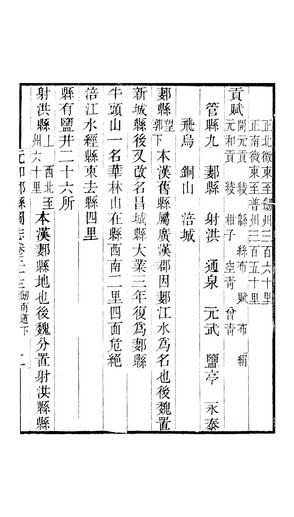 正北微東至劍州三百六十里
正南微東至普州三百五十里
貢賦
開元貢 綾 綿 絲布 賦 布 絹
元和貢 綾 柑子 空青 曾青
管縣九 郪縣 射洪 通泉 元武 鹽亭 永泰
飛烏 銅山 涪城
郪縣 望 郭下 本漢舊縣屬廣漢郡因郪江水為名也後魏置
新城縣後又改名昌城縣大業三年復為郪縣
牛頭山一名華林山在縣西南二里四面危絕
涪江水經縣東去縣四里
縣有鹽井二十六所
射洪縣 上 西北至州六十里 本漢郪縣地也後魏分置射洪縣縣
元和郡縣圖志卷三十三 劍南道下 二